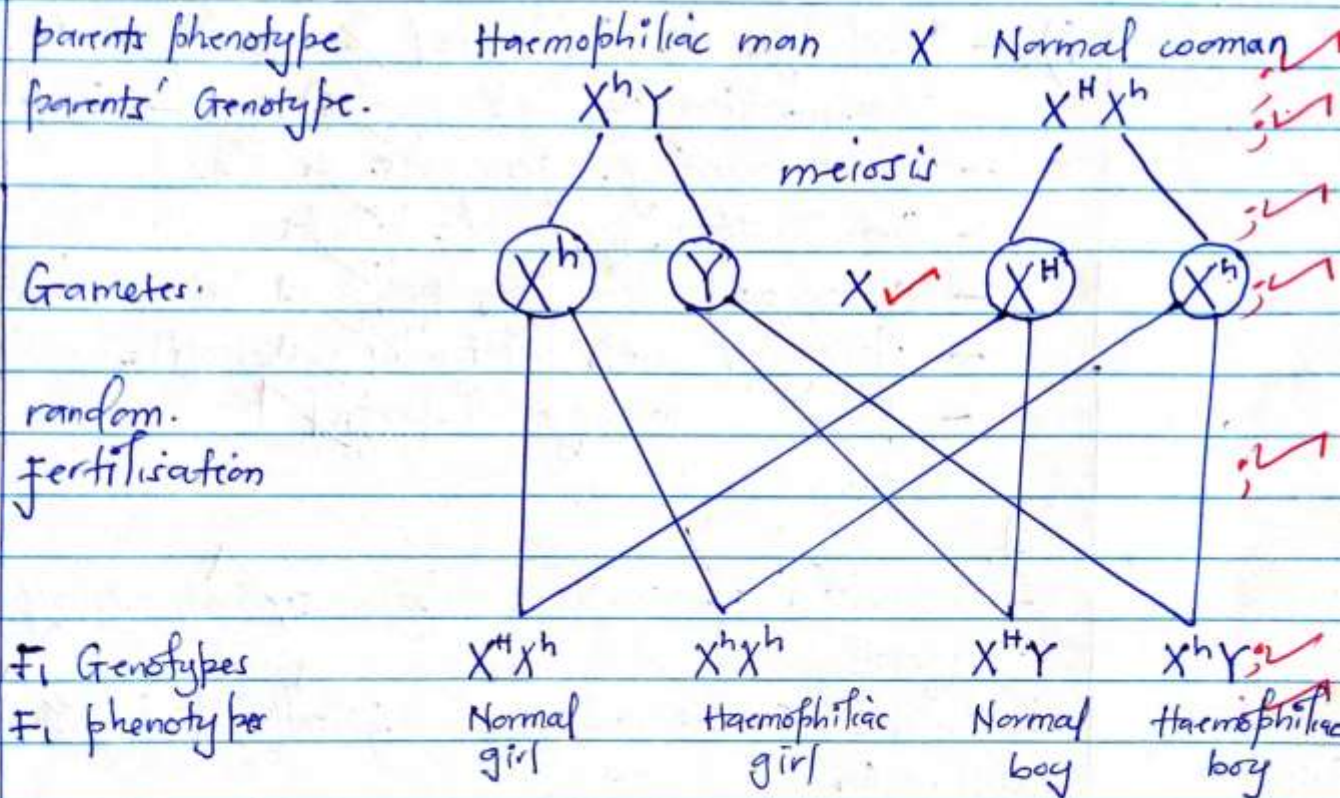 parents phenotype Haemophiliac man X Normal wooman
parents' Genotype. XʰY XᴴXʰ
meiosis
Gametes. Xʰ Y X Xᴴ Xʰ
random.
Fertilisation
F₁ Genotypes XᴴXʰ XʰXʰ XᴴY XʰY
F₁ phenotypes Normal Haemophiliac Normal Haemophiliac
girl girl boy boy